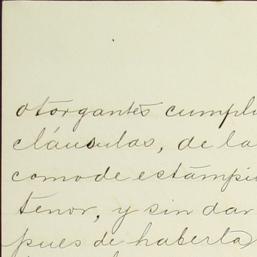 otorgantes cumpli
cláusulas, de la
como de estampi
tenor, y sin dar
pues de haberla